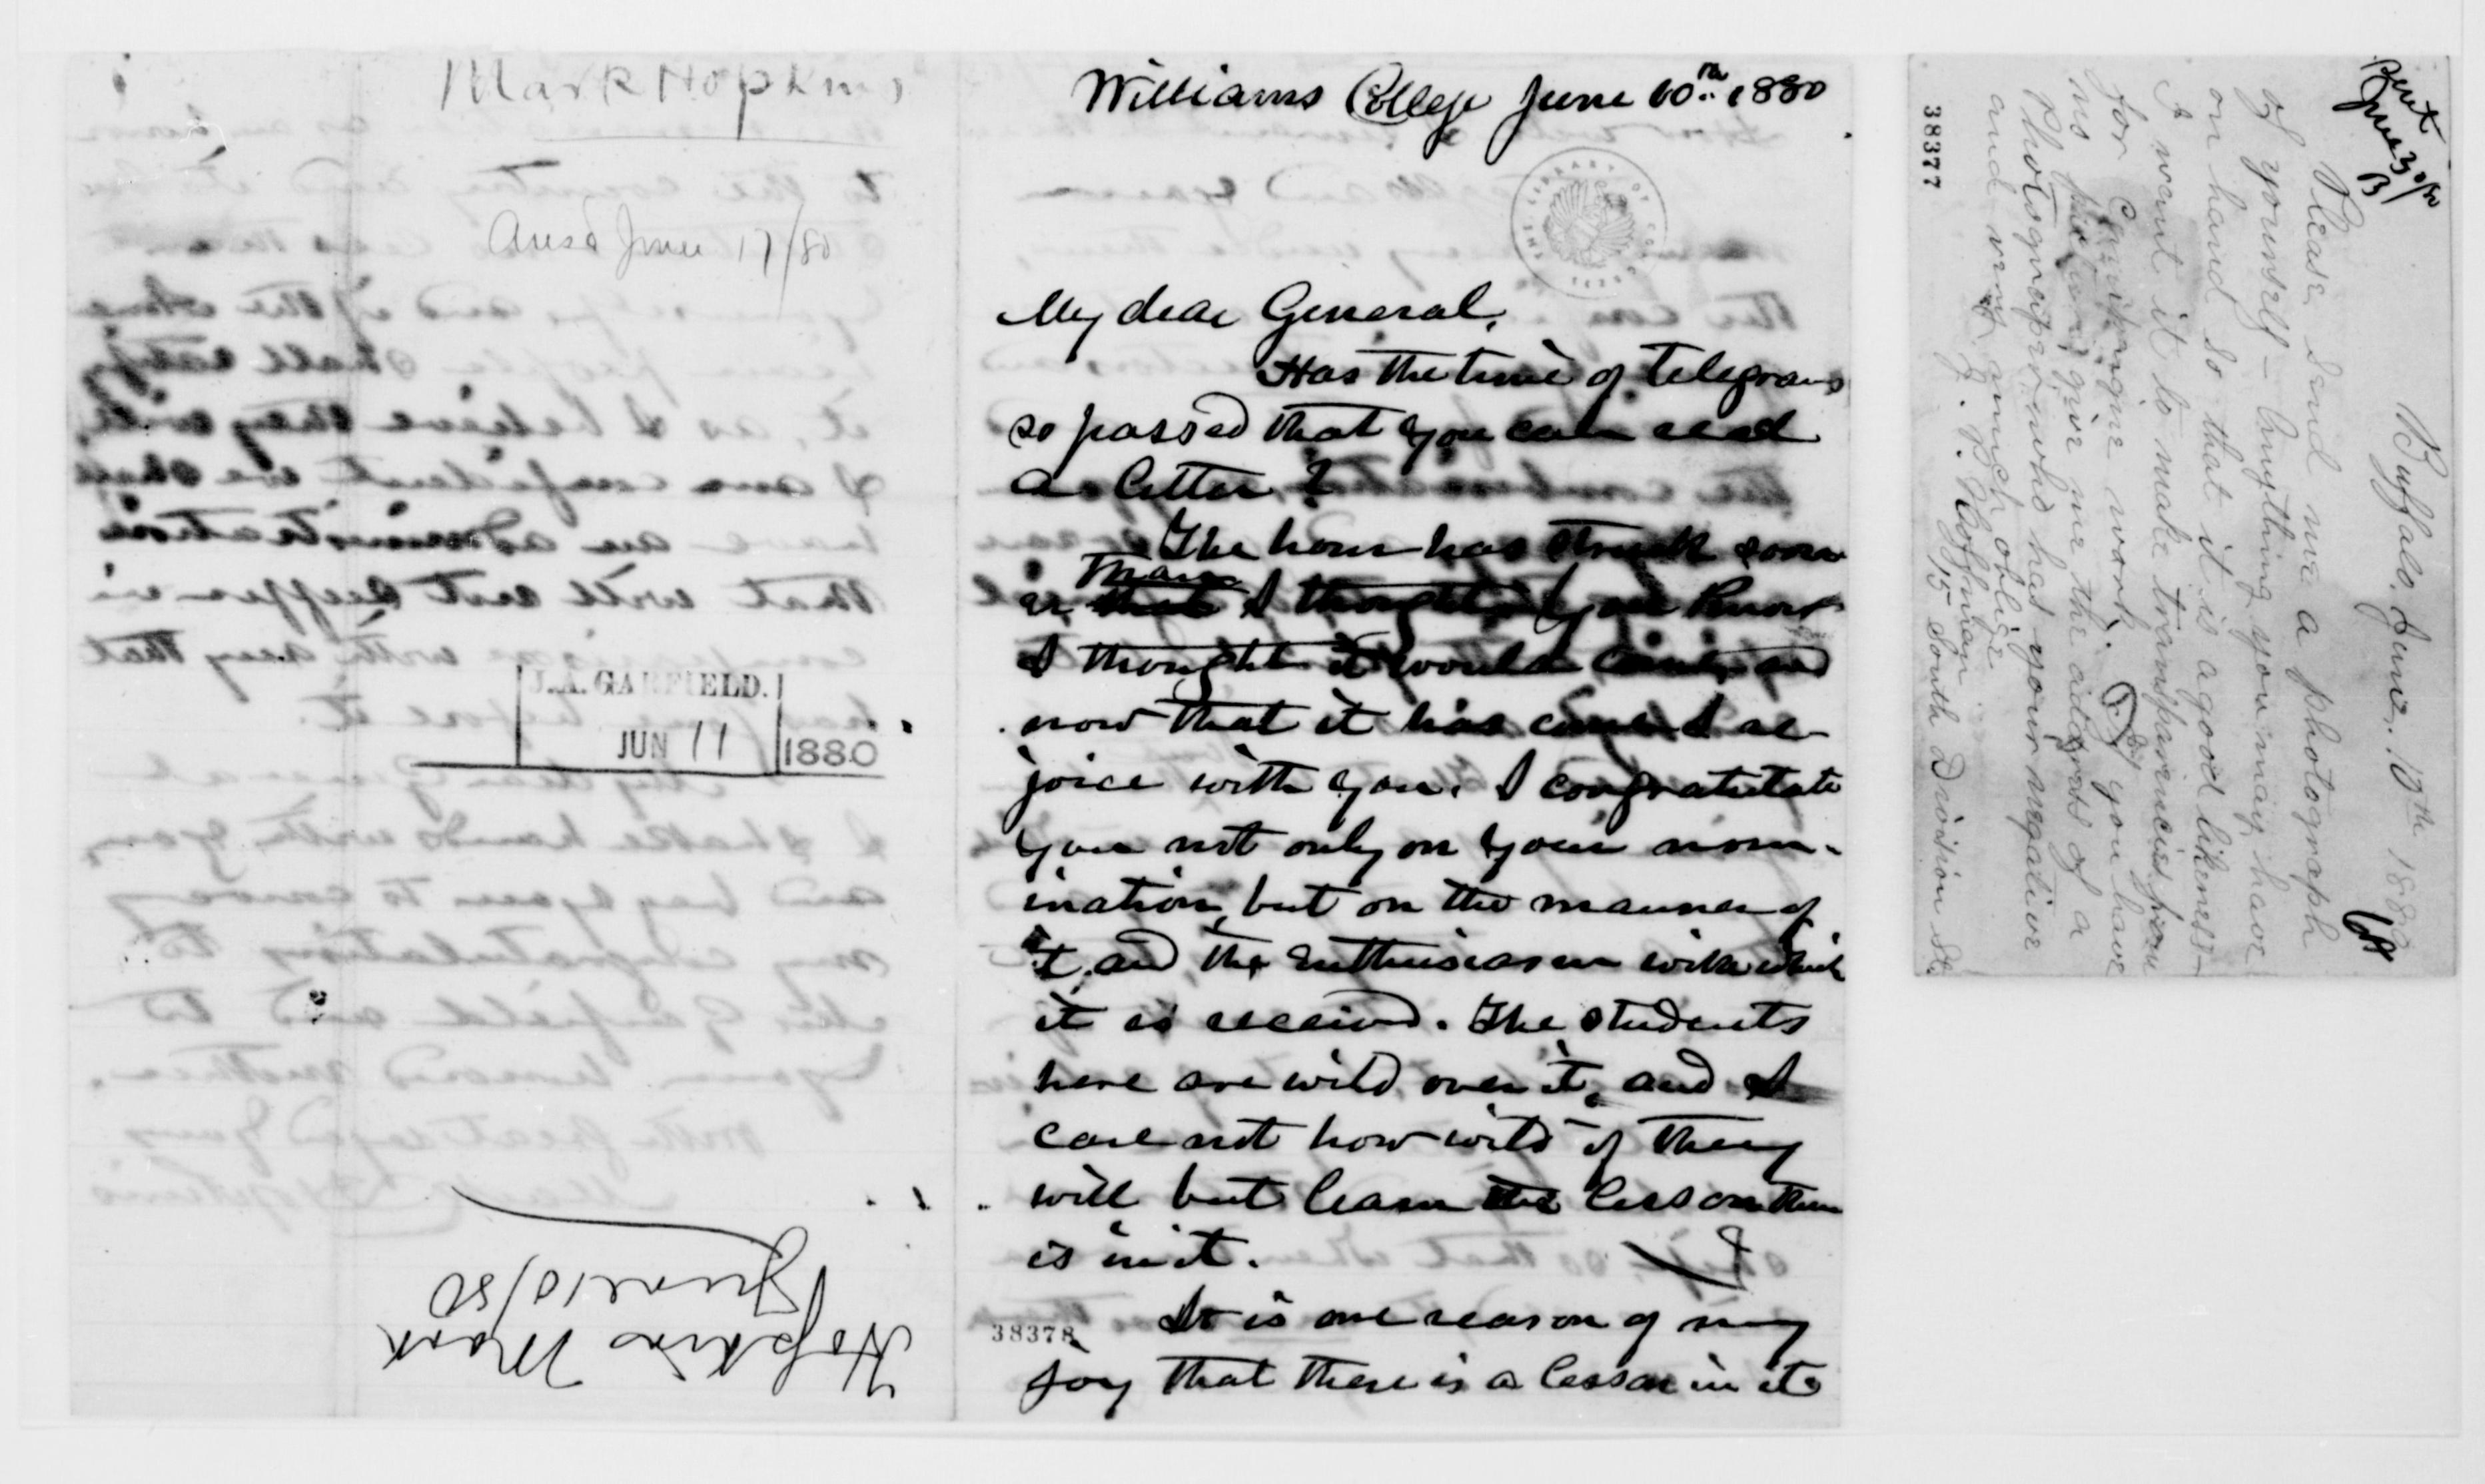 Mark Hopkins
Ansd June 17/80
J. A. GARFIELD.
JUN 11 1880
Hopkins Mark
June 10/80
Williams College June 10th 1880
THE LIBRARY OF CONGRESS
My dear General,
Has the time of telegrams
so passed that you can read
a letter?
The hour has struck soon
er than I thought. You know
I thought it would come, and
now that it has come I re-
joice with you. I congratulate
you not only on your nom-
ination, but on the manner of
it, and the enthusiasm with which
it is received. The students
here are wild over it, and I
care not how wild if they
will but learn the lesson there
is in it.
It is one reason of my
joy that there is a lesson in it
38378
Sent
June 30/80
B
Buffalo. June. 10th 1880
Please send me a photograph
of yourself – Anything you may have
on hand so that it is a good likeness–
I want it to make transparencies from
for Campaign work. If you have
no give me the address of a
Photographer who has your negative
and very much oblige
J. P. Coffman
15 South Division St.
38377